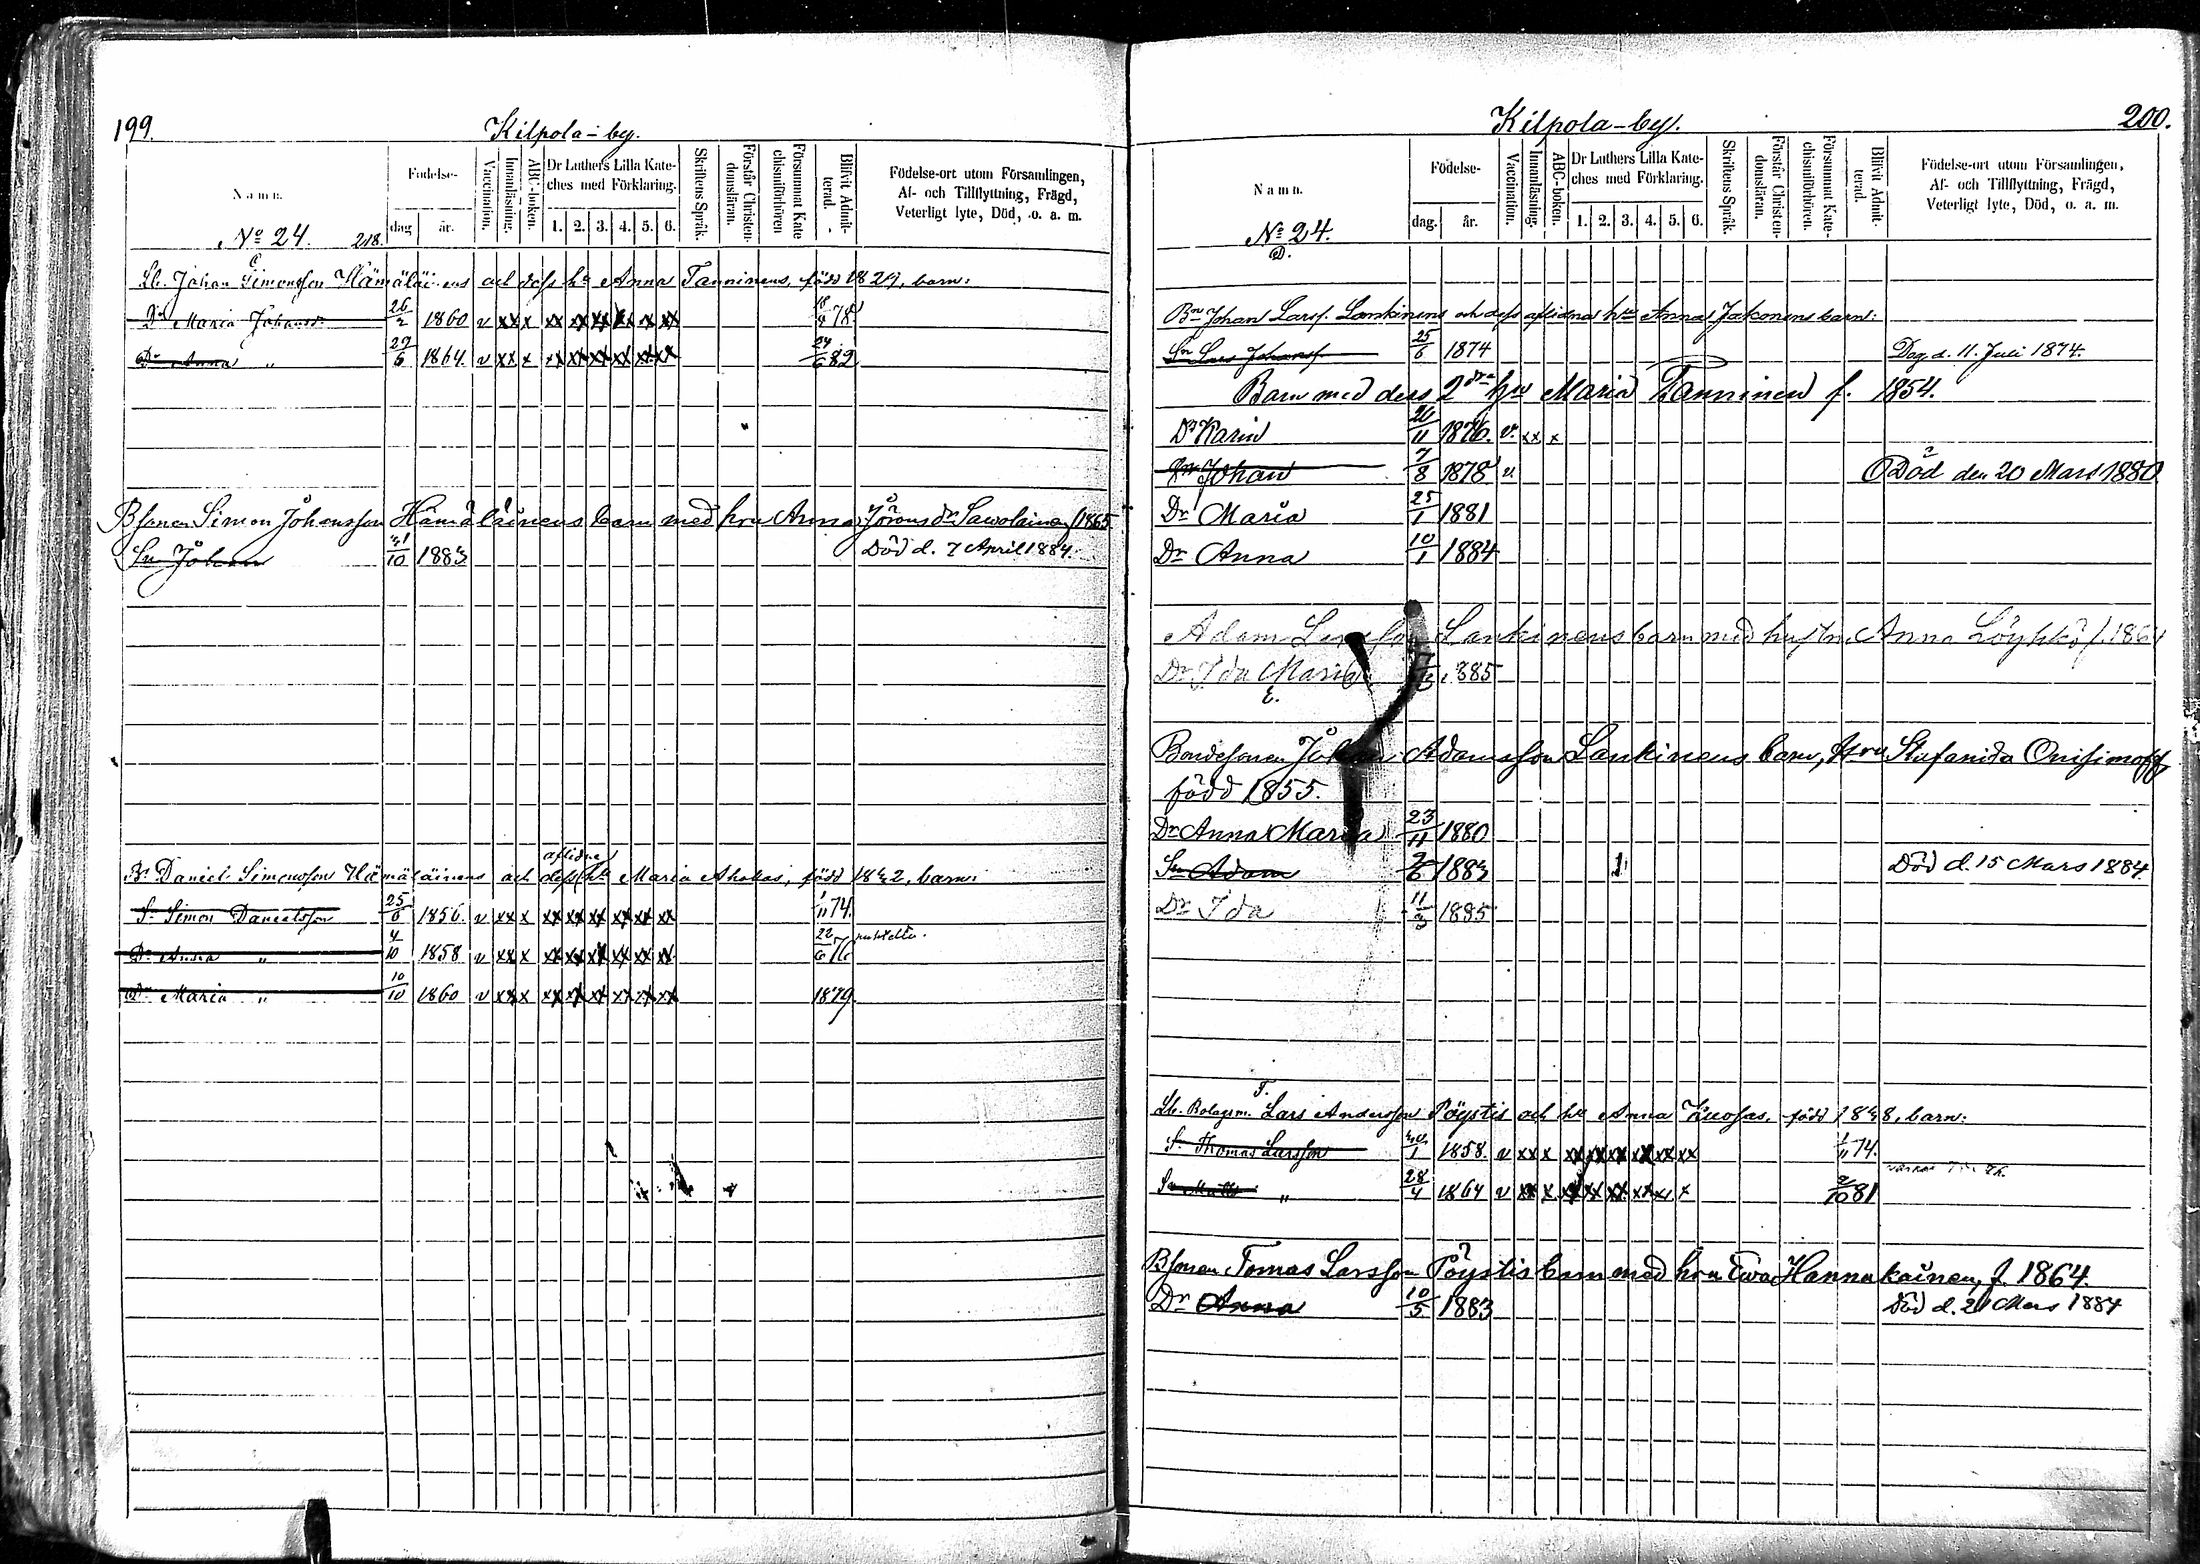 199.
Kilpola-by.
Namn.
Födelse-
dag
år.
Vaccination.
Innanläsning.
ABC-boken.
Dr Luthers Lilla Kate-
ches med Förklaring.
1. 2. 3. 4. 5. 6.
Skriftens Språk.
Förstår Christen-
domsläran.
Försummat Kate
chismiförhören
Blifvit Admit-
terad.
Födelse-ort utom Församlingen,
Af- och Tillflyttning, Frägd,
Veterligt lyte, Död, o. a. m.
No 24. 218.
C
Lb. Johan Simonsson Hämäläinens och dess hu Anna Tanninens, född 1829, barn:
Dr Maria Johansd. 26/2 1860 v xx x xx xx xx xx xx xx 18/4 78.
Dr Anna " 27/6 1864. v xx x xx xx xx xx xx xx 24/6 82
Bsonen Simon Johansson Hämäläinens barn med hru Anna Jöransdr Sawolainen f 1865
Sn Johan 31/10 1883 Död d. 7 April 1884.
aflidne
Br Daniel Simonsson Hämäläinens och dess hu Maria Ahokas, född 1832, barn:
Sn Simon Danielsson 25/6 1856. v xx x xx xx xx xx xx xx 1/11 74.
Dr Anna " 4/10 1858 v xx x xx xx xx xx xx xx 22/6 76
Dr Maria " 10/10 1860 v xx x xx xx xx xx xx xx 1879.
Kilpola-by.
200.
Namn.
Födelse-
dag.
år.
Vaccination.
Innanläsning.
ABC-boken.
Dr Luthers Lilla Kate-
ches med Förklaring.
1. 2. 3. 4. 5. 6.
Skriftens Språk.
Förstår Christen-
domsläran.
Försummat Kate-
chismiförhören.
Blifvit Admit-
terad.
Födelse-ort utom Församlingen,
Af- och Tillflyttning, Frägd,
Veterligt lyte, Död, o. a. m.
No 24.
D.
Bn Johan Larss. Lankinens och dess aflidna hus Annas Jakonens barn:
Sn Lars Johanss. 25/6 1874 Dog d. 11. Juli 1874.
Barn med dess 2dra hu Maria Tanninen f. 1854.
Dr Karin 26/11 1876. v. xx x
Sn Johan 7/8 1878 v Död den 20 Mars 1880
Dr Maria 25/1 1881
Dr Anna 10/1 1884
Adam Larsson Lankinens barn med hustru Anna Löyhkö f. 1864
Dr Ida Maria 1885
E.
Bondesonen Johan Adamsson Lankinens barn, hru Stefanida Onisimoff
född 1855.
Dr Anna Maria 23/11 1880
Sn Adam 2/6 1883 Död d. 15 Mars 1884
Dr Ida 11/3 1885
F.
Lb. Bolagsm. Lars Andersson Pöystis och hu Anna född 1838, barn:
Sn Thomas Larsson 1858. v xx x xx xx xx xx xx xx 1/11 74.
Sn Matts " 28/4 1864 v xx x xx xx xx xx x x 2/10 81
Bsonen Tomas Larsson Pöystis barn med hru Ewa Hannukainen, f. 1864.
Dr Anna 10/5 1883 Död d. 21 Mars 1884